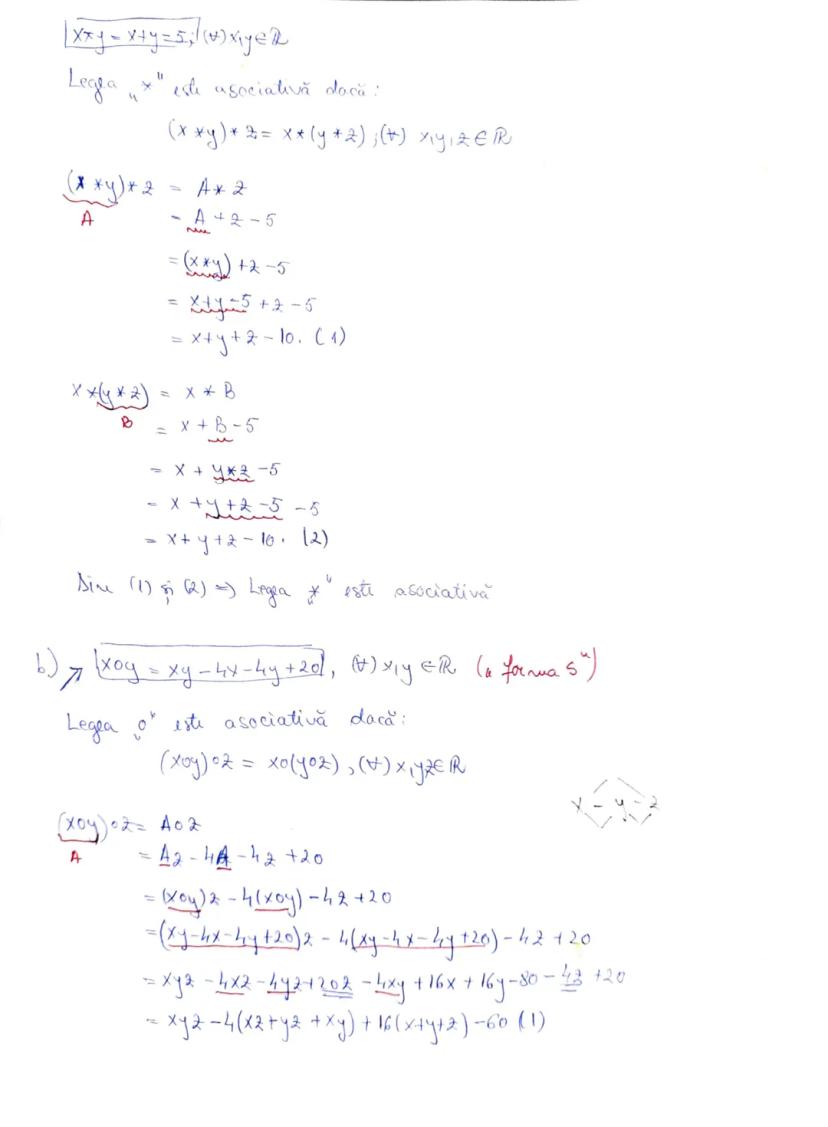 x*y = x+y=5, (∀) x,y∈ℝ
Legea „*" este asociativă dacă:
(x*y)*z = x*(y*z), (∀) x,y,z∈ℝ
(x*y)*z = A*z
A
= A+z-5
= (x*y)+z-5
= x+y-5+z-5
= x+y+z-10. (1)
x*(y*z) = x*B
B
= x+B-5
= x+y*z-5
= x+y+z-5-5
= x+y+z-10. (2)
Din (1) și (2) => Legea „*" este asociativă
b) xoy = xy-4x-4y+20, (∀) x,y∈ℝ („forma S")
Legea „o" este asociativă dacă:
(xoy)oz = xo(yoz), (∀) x,yz∈ℝ
x - y - z
(xoy)oz = Aoz
A
= Az-4A-4z+20
= (xoy)z-4(xoy)-4z+20
= (xy-4x-4y+20)z-4(xy-4x-4y+20)-4z+20
= xyz-4xz-4yz+20z-4xy+16x+16y-80-4z+20
= xyz-4(xz+yz+xy)+16(x+y+z)-60 (1)